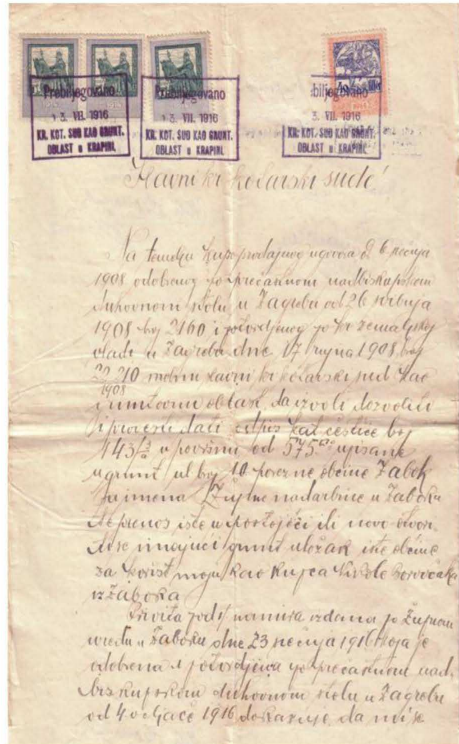 Prebiljegovano
13. VII. 1916
KR. KOT. SUD KAO GRUNT.
OBLAST u KRAPINI.
Prebiljegovano
3. VII. 1916
KR. KOT. SUD KAO GRUNT.
OBLAST u KRAPINI.
biljegovano
3. VII. 1916
KR. KOT. SUD KAO GRUNT.
OBLAST u KRAPINI.
Slavni kr kotarski sude!
Na temelju kupoprodajnog ugovora d. 6 siečnja
1908 odobrenog po prečastnom nadbiskupskom
duhovnom stolu u Zagrebu od 26 svibnja
1908 broj 2160 i potvrdjenog po kr zemaljskoj
vladi u Zagrebu dne 17 rujna 1908 broj
1908 molim slavni kr kotarski sud kao
gruntovnu oblast, da izvoli dozvoliti
i provesti dati otpis kat čestice broj
443/ u površini od 575 upisane
u grunt ul broj 10 porezne obćine Zabok
na imena župne nadarbine u Zaboku
te prenos iste u postojeći ili novo otvori
ti se imajući grunt uložak iste obćine
za korist moju kao kupca
iz Zaboka
namira izdana po župnom
uredu u Zaboku dne 23 1916 koja je
odobrena i potvrdjena po prečastnom nad
biskupskom duhovnom stolu u Zagrebu
od 4 veljače 1916 dokazuje da mi je